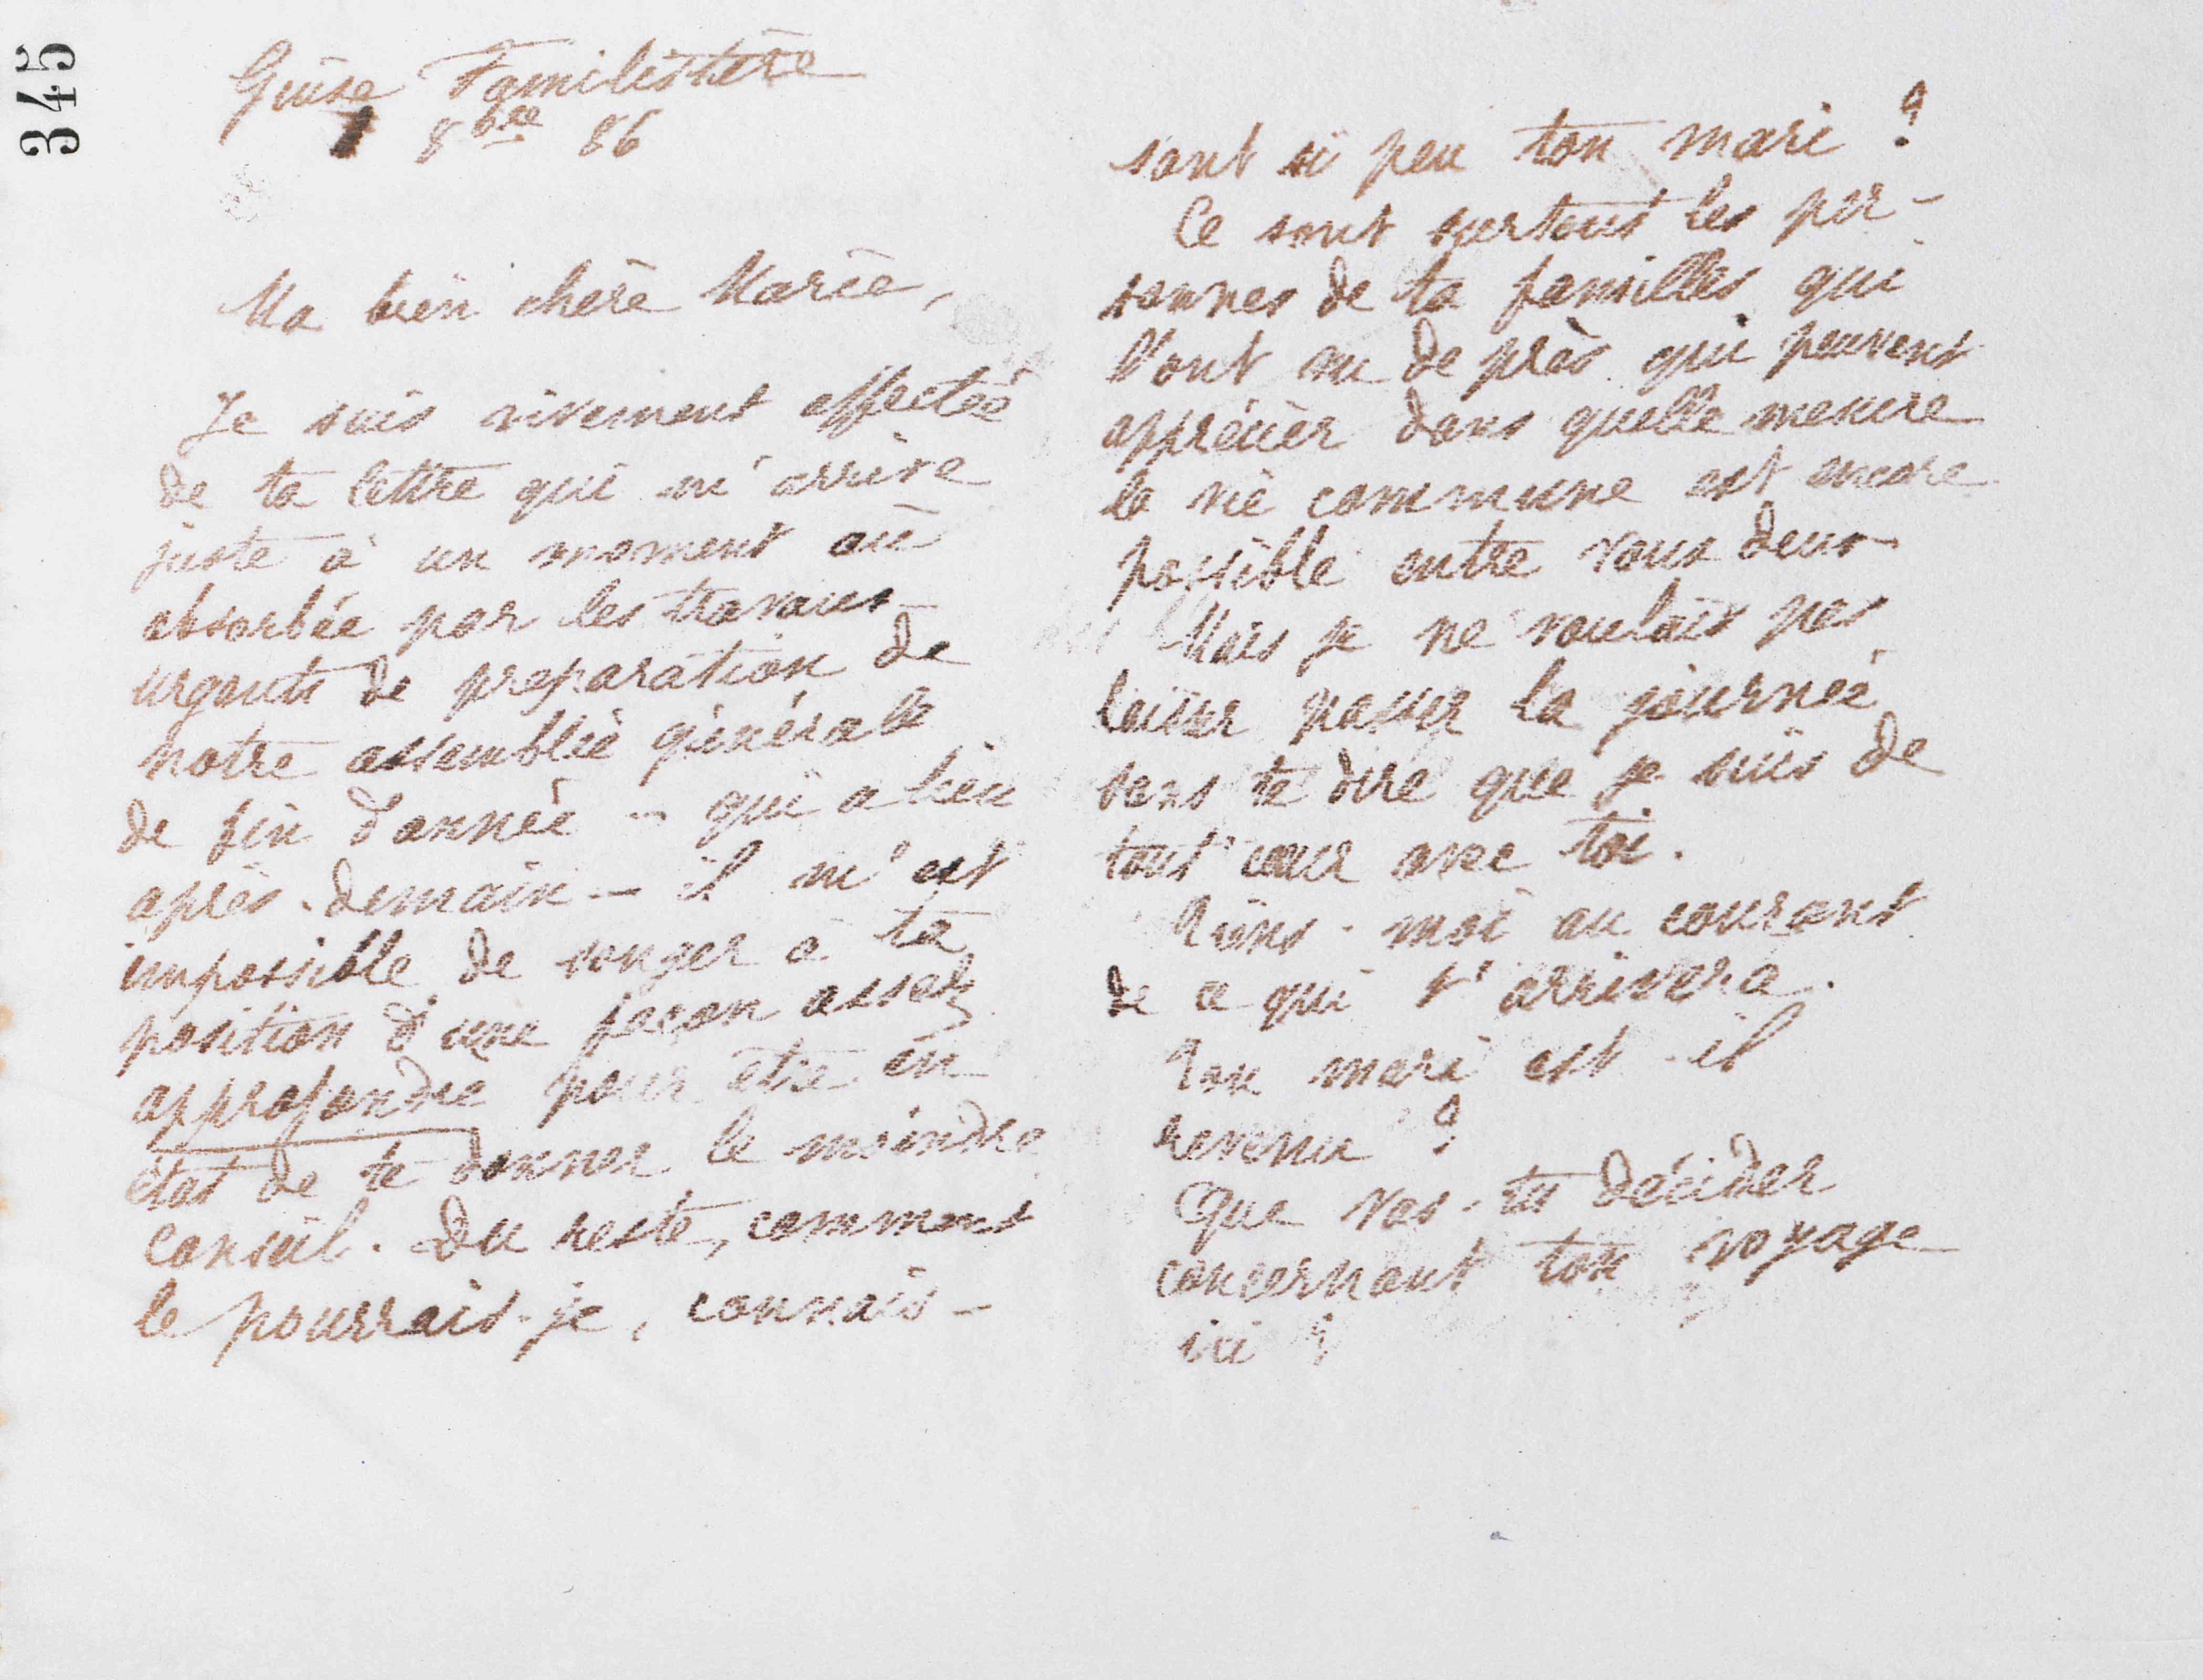 345
Guise Familistère
1 8bre 86
Ma bien chère Marie,
Je suis vivement affectée
de ta lettre qui m'arrive
juste à un moment où
absorbée par les travaux
urgents de préparation de
notre assemblée générale
de fin d'année - qui a lieu
après-demain - il m'est
impossible de songer à ta
position d'une façon assez
approfondie pour être en
état de te donner le moindre
conseil. Du reste, comment
le pourrais-je, connais-
sant si peu ton mari ?
Ce sont surtout les per-
sonnes de ta familles qui
l'ont vu de près qui peuvent
apprécier dans quelle mesure
la vie commune est encore
possible entre vous deux
Mais je ne voulais pas
laisser passer la journée
sans te dire que je suis de
tout cœur avec toi.
Tiens-moi au courant
de ce qui t'arrivera.
Ton mari est-il
revenu ?
Que vas-tu décider
concernant ton voyage
ici ?